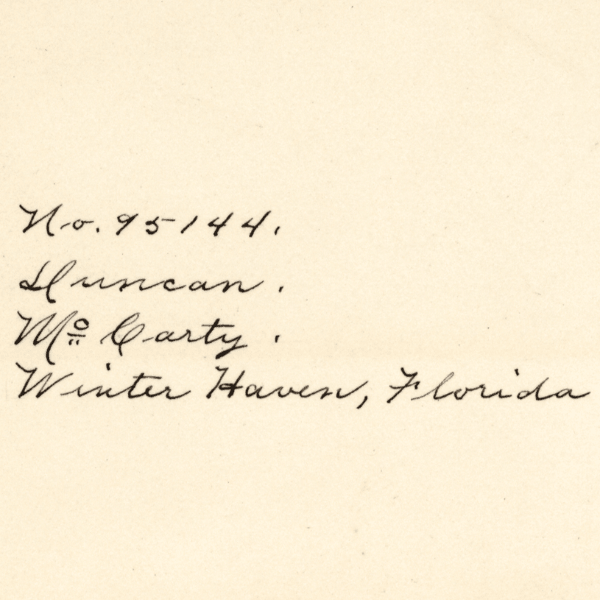 No. 95144.
Duncan.
Mc Carty.
Winter Haven, Florida